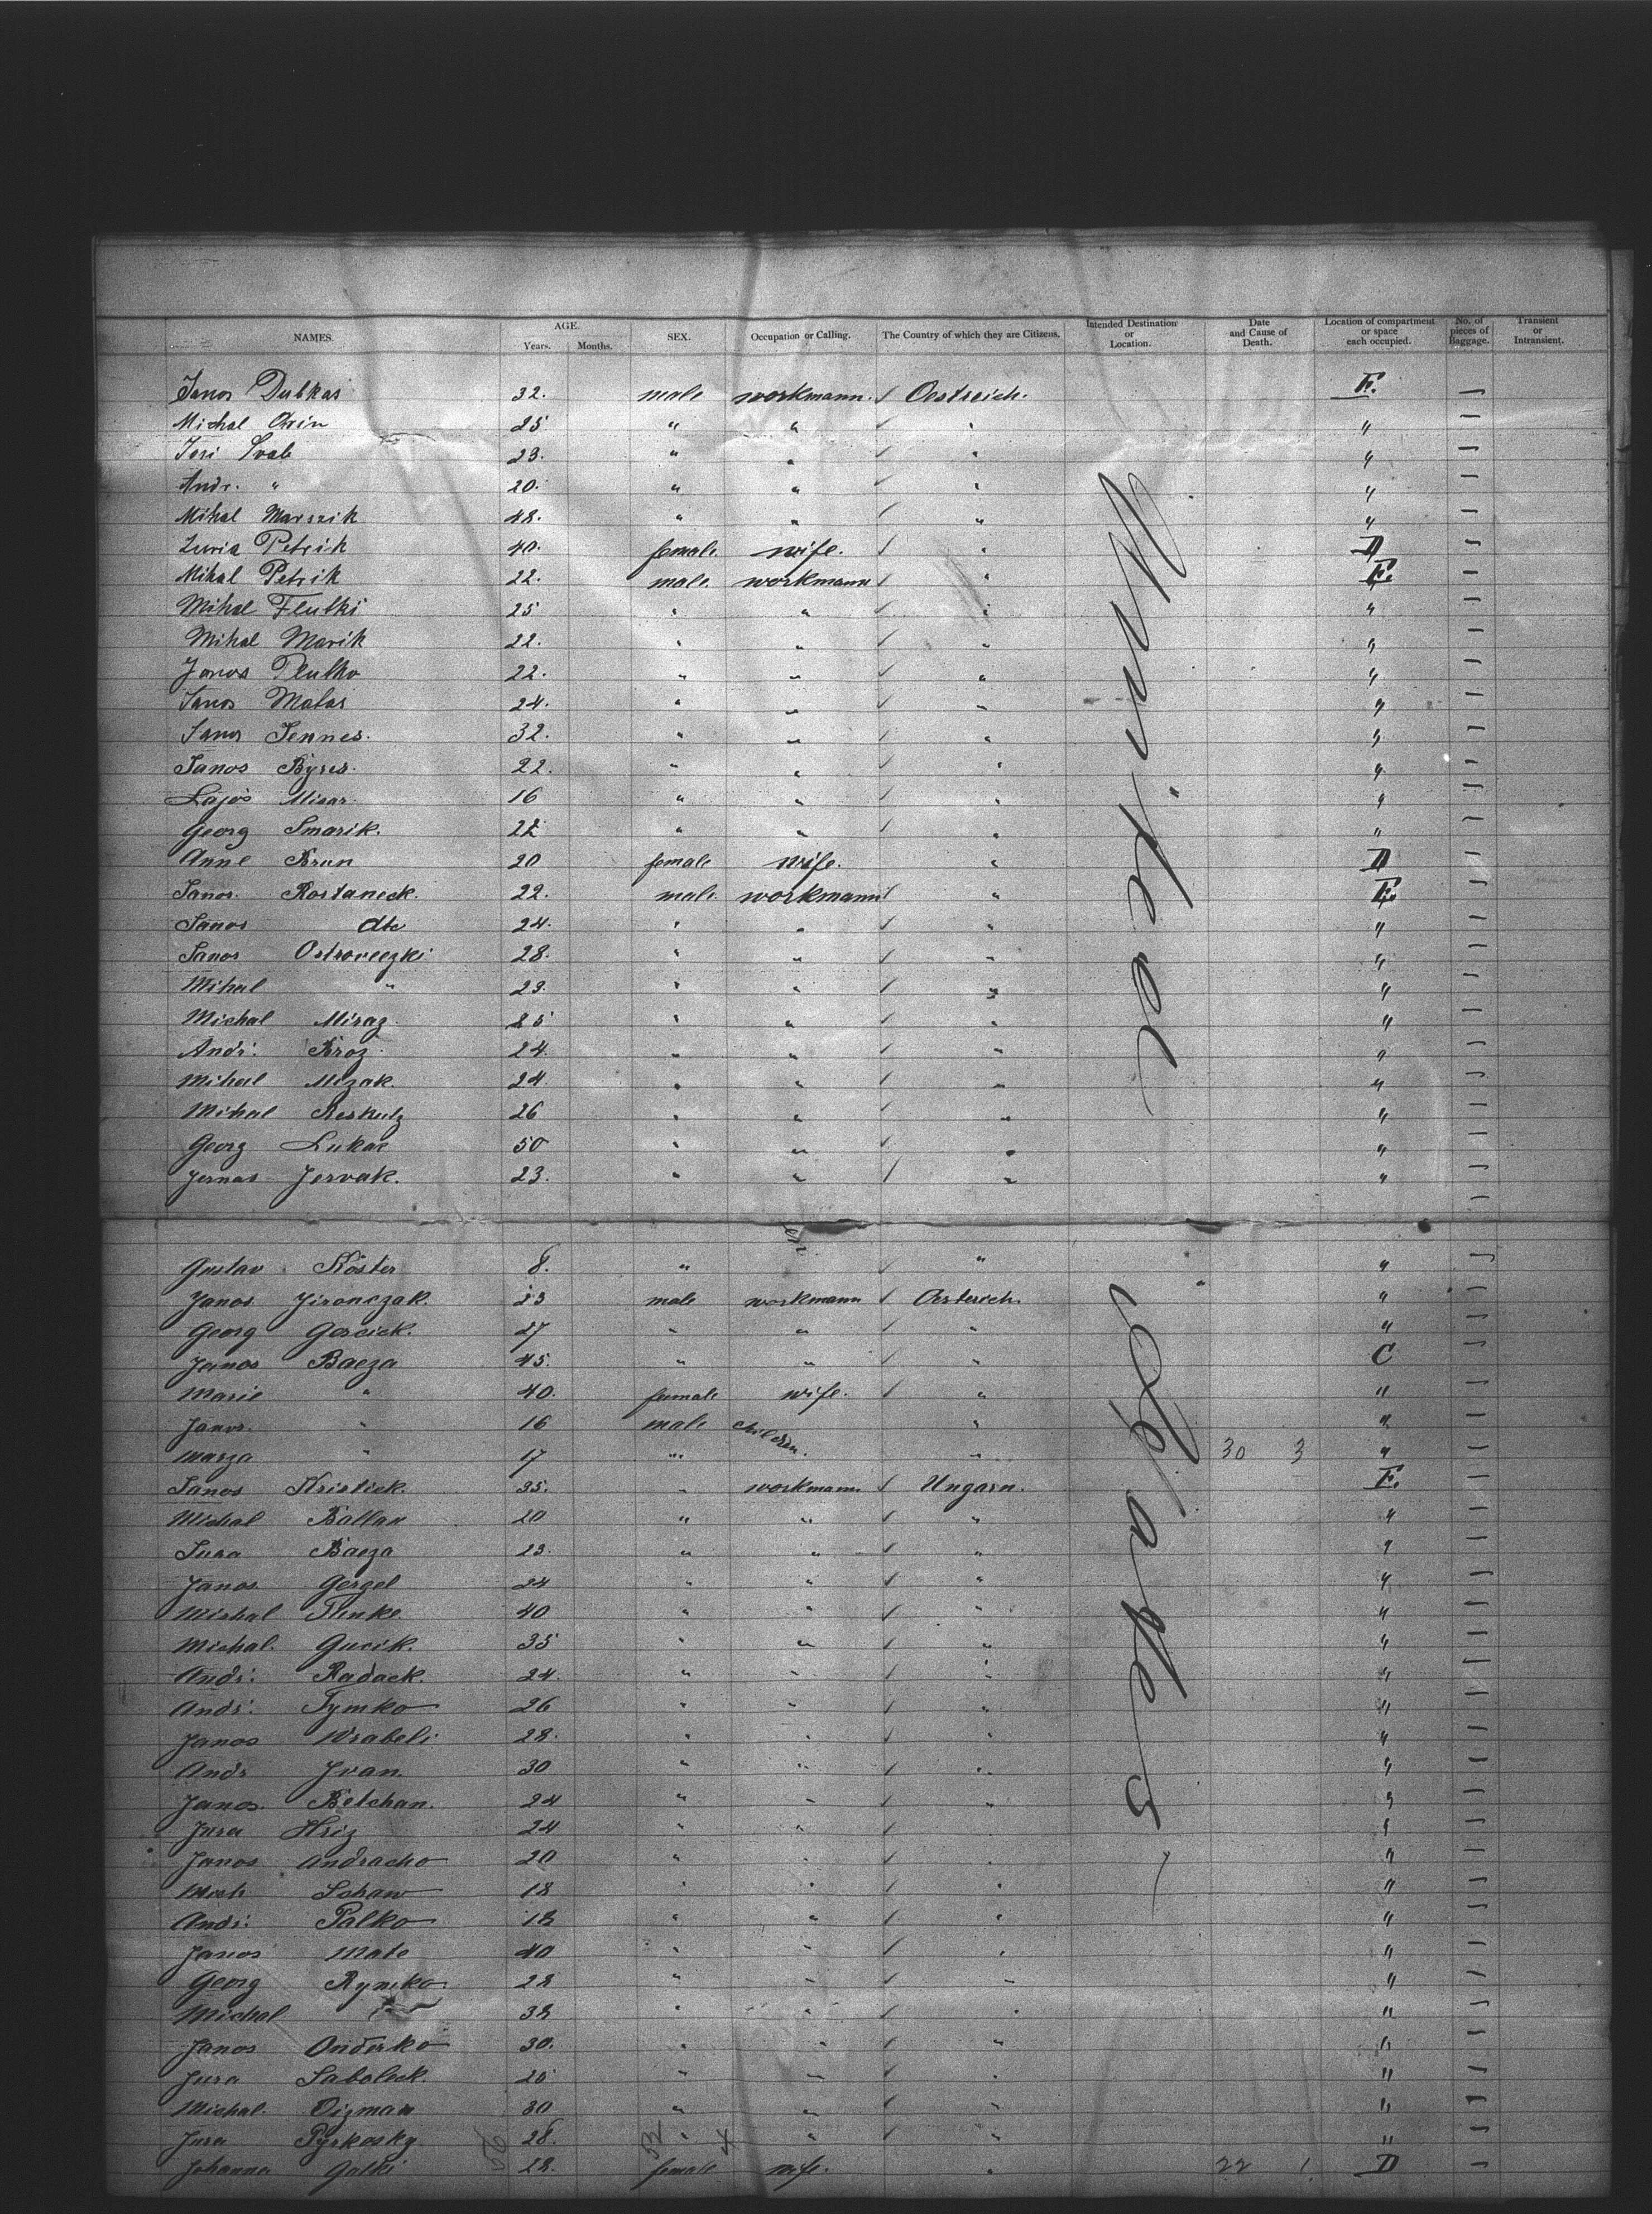 NAMES. AGE. Years. Months. SEX. Occupation or Calling. The Country of which they are Citizens. Intended Destination or Location. Date and Cause of Death. Location of compartment or space each occupied. No. of pieces of Baggage. Transient or Intransient.
Janos Dubkas 32. male workmann. ✓ Oestreich. E. —
Michal 25 " " ✓ " " —
Jori Svab 23. " " ✓ " " —
Andr. " 20. " " ✓ " " —
Mihal Marszik 48. " " ✓ " " —
Petrik 40. female wife. ✓ " D "
Mihal Petrik 22. male workmann ✓ " E. —
Mihal Flutki 25 " " ✓ " " —
Mihal Marik 22. " " ✓ " " —
Janos Plutko 22. " " ✓ " " —
Janos Matas 24. " " ✓ " " —
Janos Jennes. 32. " " ✓ " " —
Janos Byres. 22. " " ✓ " " —
Lajos Misar. 16 " " ✓ " " —
Georg Smarik. 22 " " ✓ " " —
Anne Brun 20 female wife. " D —
Janos. Rostaneck. 22. male. workmann ✓ " E. —
Janos dto 24. " " ✓ " " —
Janos Ostroveczki 28. " " ✓ " " —
Mihal " 23. " " ✓ " " —
Michal Miraz 25 " " ✓ " " —
Andr. Broz. 24. " " ✓ " " —
Mihal Mizak. 24. " " ✓ " " —
Mihal Reskutz 26 " " ✓ " " —
Georg Lukac 50 " " ✓ " " —
Jornas Jorvak. 23. " " ✓ " " —
Gustav Köster 8. " ✓ " " —
Janos Jironczak. 23 male workmann ✓ Oesterich. " —
Georg Gorcick. 27 " " ✓ " " —
Janos Bacza 45. " " ✓ " C —
Marie " 40. female wife. ✓ " " —
Janos. " 16 male children. " " —
Marza " 17 " " 30 3 " —
Janos Kristick. 35. " workmann ✓ Ungarn. E. —
Michal Ballan 20 " " ✓ " " —
Jura Bacza 23. " " ✓ " " —
Janos Gergel 24 " " ✓ " " —
Michal Flinke. 40 " " ✓ " " —
Michal. Gucik. 35 " " ✓ " " —
Andr. Radack. 24. " " ✓ " " —
Andr. Tymko 26 " " ✓ " " —
Janos Wrabeli 28. " " ✓ " " —
Andr Ivan. 30 " " ✓ " " —
Janos. Betchan. 24 " " ✓ " " —
Jura Hriz 24 " " ✓ " " —
Janos Andracho 20 " " ✓ " " —
Mich. Schaw 18 " " ✓ " " —
Andr. Palko 18 " " ✓ " " —
Janos Mato 40 " " ✓ " " —
Georg Rymko 28 " " ✓ " " —
Michal 38 " " ✓ " " —
Janos Onderko 30. " " ✓ " " —
Jura Saboleck. 25 " " ✓ " " —
Michal. Dizman 30 " " ✓ " " —
Jura Pyrkosky 28. " " ✓ " " —
Johanna Gatki 28. female wife. " 22 1 D —
United
States